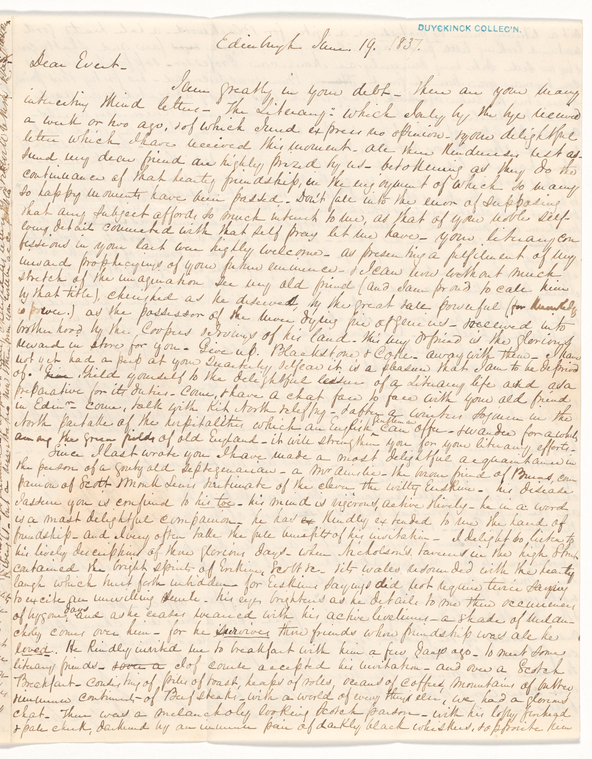 DUYCKINCK COLLEC'N.
Edinburgh June 19. 1837.
Dear Evert-
I am greatly in your debt - There are your many
interesting kind letters - The Literary which only by the bye received
a week or two ago, & of which I need express no opinion - & your delightful
letter which I have received this moment - all these kindnesses rest as-
sured my dear friend are highly prized by us - betokening as they do the
continuance of that hearty friendship, in the enjoyment of which so many
so happy moments have been passed - Don't fall into the error of supposing
that any subject affords so much interest to me, as that of your noble self
every detail connected with that self pray let me have - your literary con
fessions in your last were highly welcome - as presenting a fulfilment of my
inward prophecyings of your future eminence - I can now without much
stretch of the imagination see my old friend (and I am proud to call him
by that title), cherished as he deserves by the great
is power), as the possessor of the never dying fire of genius - received into
brotherhood by the Coopers & Irvings of his land - this my friend is the glorious
reward in store for you - Give up Blackstone & Coke - away with them - I have
not yet had a peep at your Quarterly
of. Yield yourself to the delightful of a literary life and as a
preparative for its duties - Come, & have a chat face to face with your old friend
in Edinr - come, talk with Kit North - & after a winter in the
North partake of the hospitalities which an English can offer - & wander for a while
among the green fields of old England - it will strengthen you for your literary efforts -
Since I last wrote you I have made a most delightful acquaintance in
the person of a gouty old Septuagenarian - a Mr Ainslie - the warm friend of Burns, com
panion of Scott Monk Lewis & intimate of the clever the witty Erskine - his disease
I assure you is confined to his toe - his mind is vigorous, active & lively - he in a word
is a most delightful companion - he has kindly extended to me the hand of
friendship - and I very often take the full benefit of his invitation - I delight to listen to
his lively descriptions of those glorious days - when Nicholson's taverns in the high Street
contained the bright spirits of Erskine, Scott &c. Its walls resounded with the hearty
laugh which burst forth unbidden - for Erskines sayings did not require twice saying
to excite an unwilling smile - his eye brightens as he details to me these occurrences
of bygone days and as he ceases wearied with his active liveliness - a shade of melan-
choly comes over him - for he survives those friends whose friendship was all he
loved. He kindly invited me to breakfast with him a few days ago - to meet some
literary friends - I of course accepted his invitation - and over a Scotch
Breakfast - consisting of piles of toast, heaps of rolls, oceans of coffee, mountains of butter
of Beef steaks - with a world of every thing else, we had a glorious
chat - There was a melancholy looking Scotch parson - with his lofty forehead
& pale cheek, darkened by an immense pair of darkly black whiskers, & opposite him